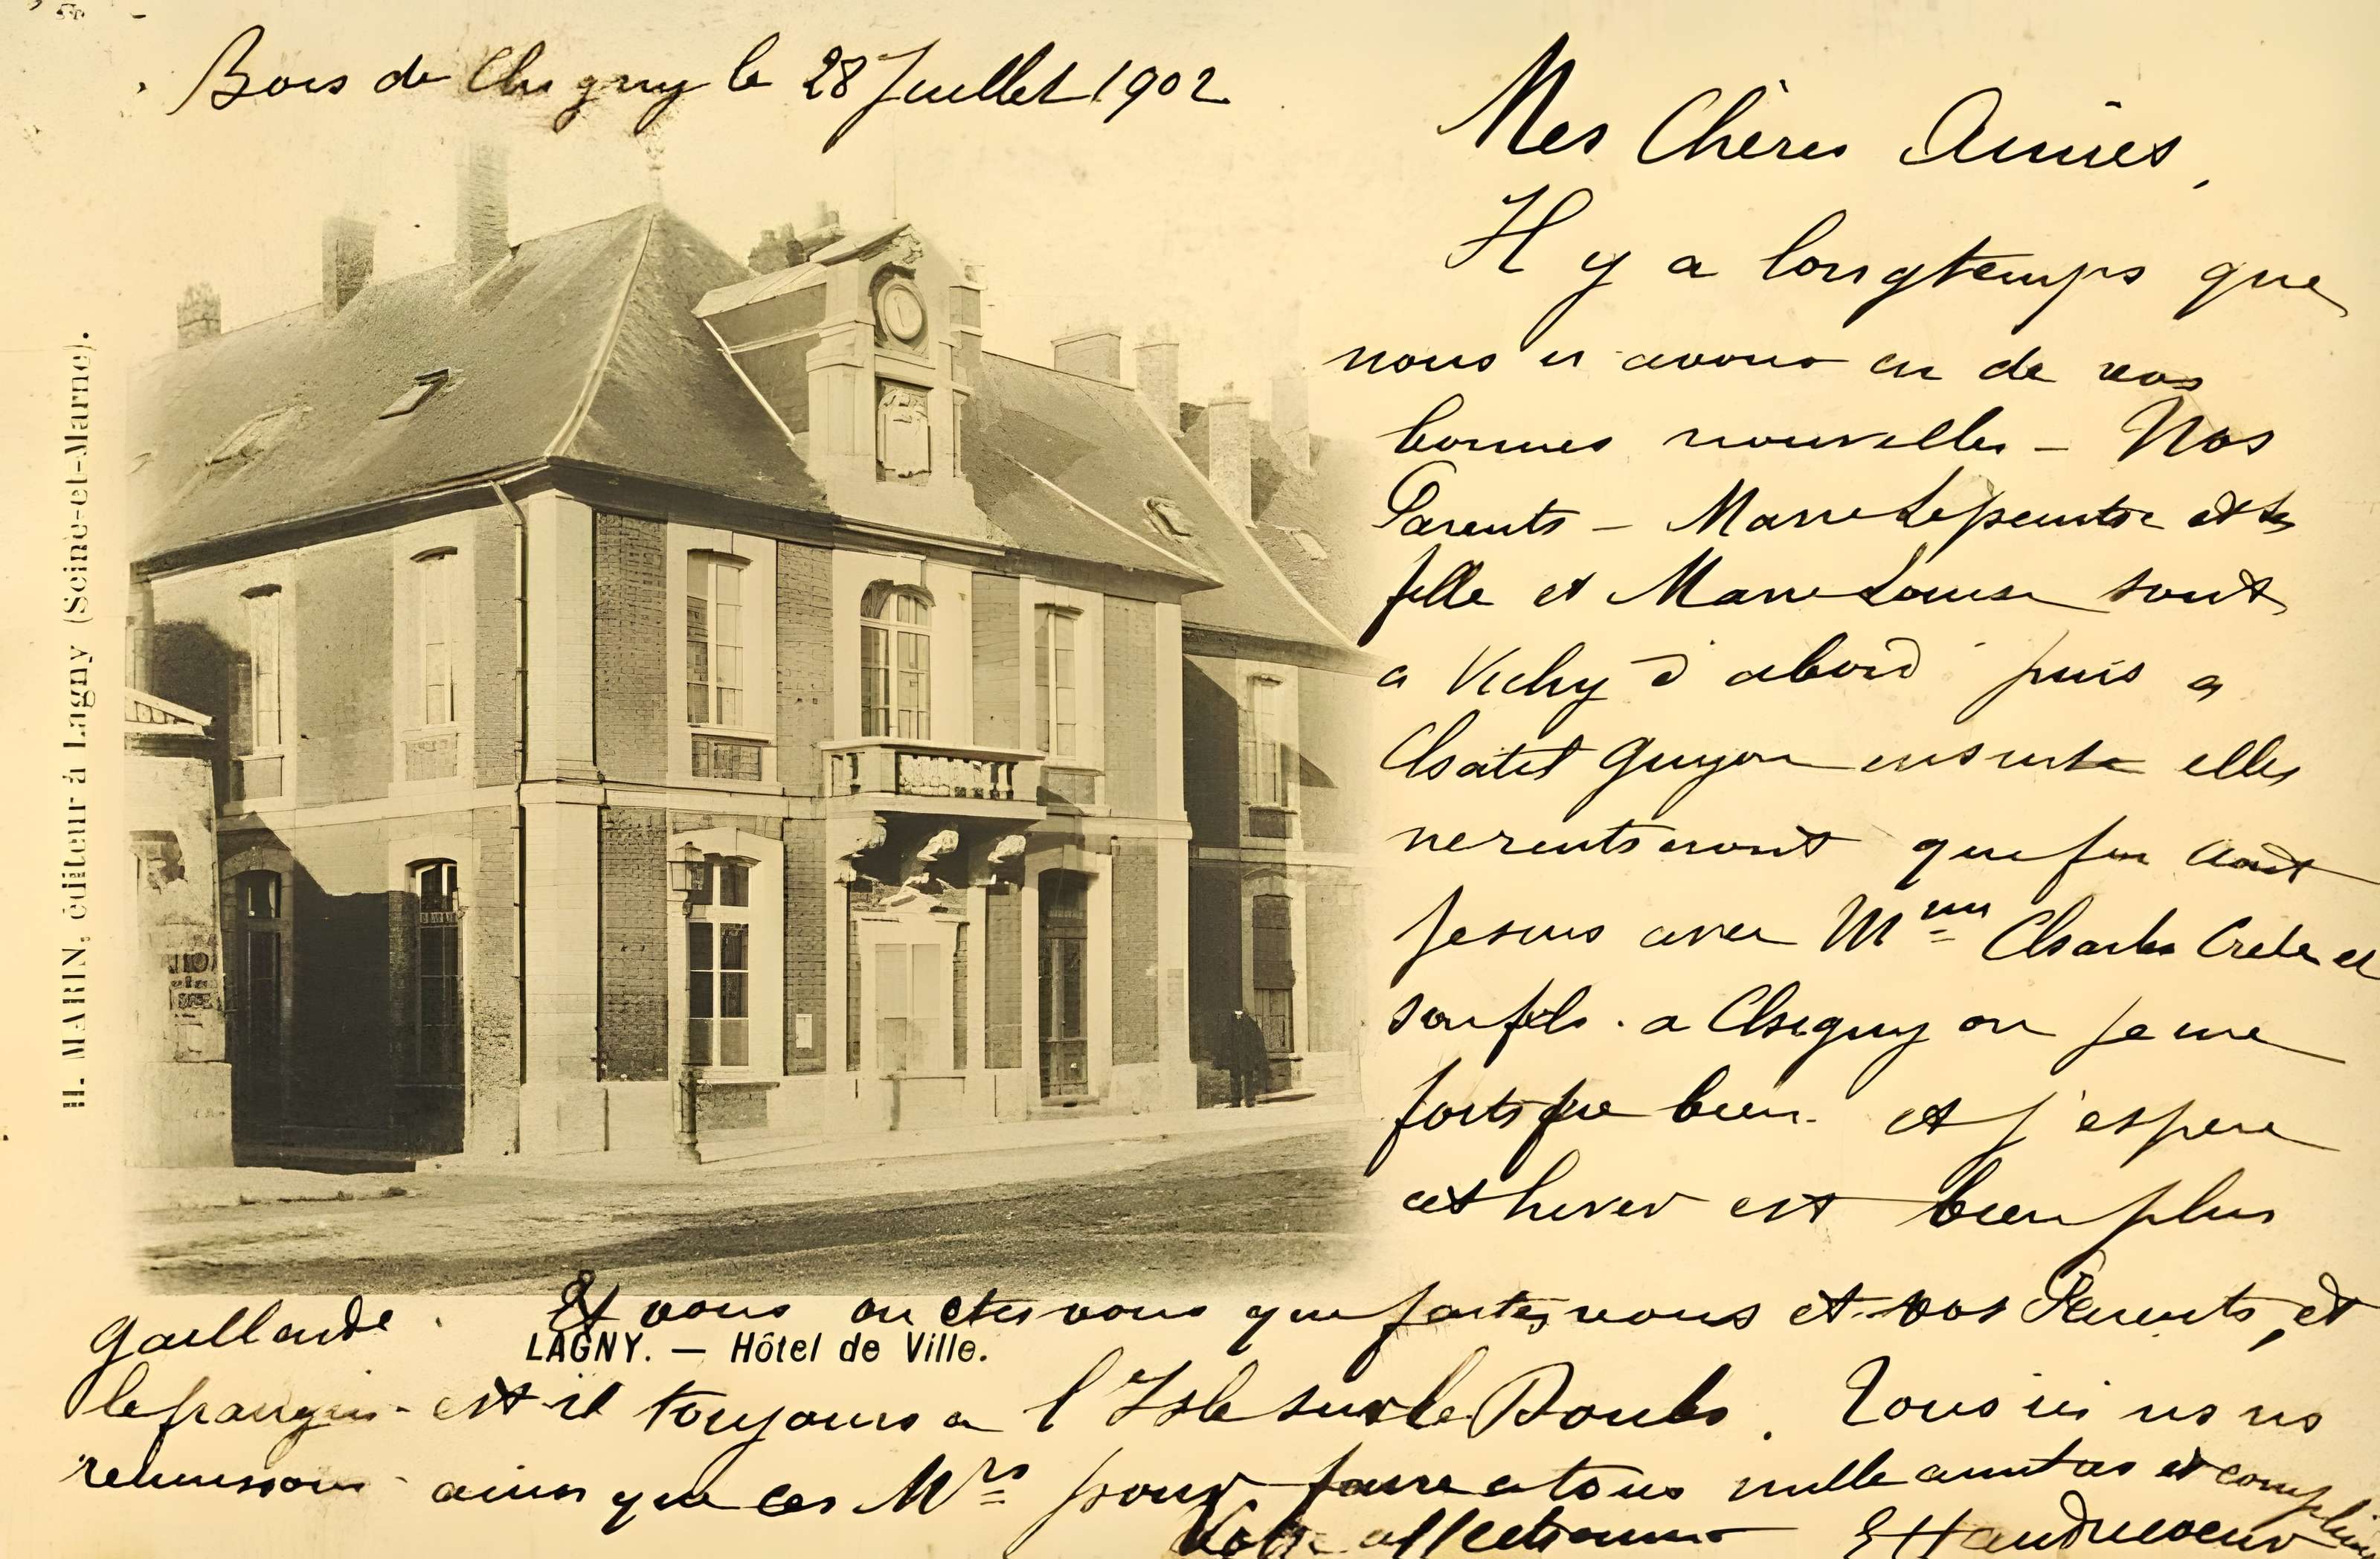 Bois de Chigny le 28 Juillet 1902
Mes Chères Amies,
Il y a longtemps que
nous n avons eu de vos
bonnes nouvelles - Nos
Parents - Marie Lepeintre et sa
fille et Marie Louise sont
a Vichy d abord puis a
Chatel Guyon ensuite elles
ne rentreront que fin Aout
Je suis avec Mme Charles Crete et
son fils. a Chigny ou je me
fortifie bien. et j'espere
cet hiver etre bien plus
gaillarde. Et vous ou etes vous que faites vous et vos Parents, et
LAGNY. — Hôtel de Ville.
le frangin - est il toujours a l'Isle sur le Doubs. Tous ici ns ns
reunissons ainsi que ces Mrs pour faire a tous mille amities et
Votre affectionnée
H. MARIN, éditeur à Lagny (Seine-et-Marne).